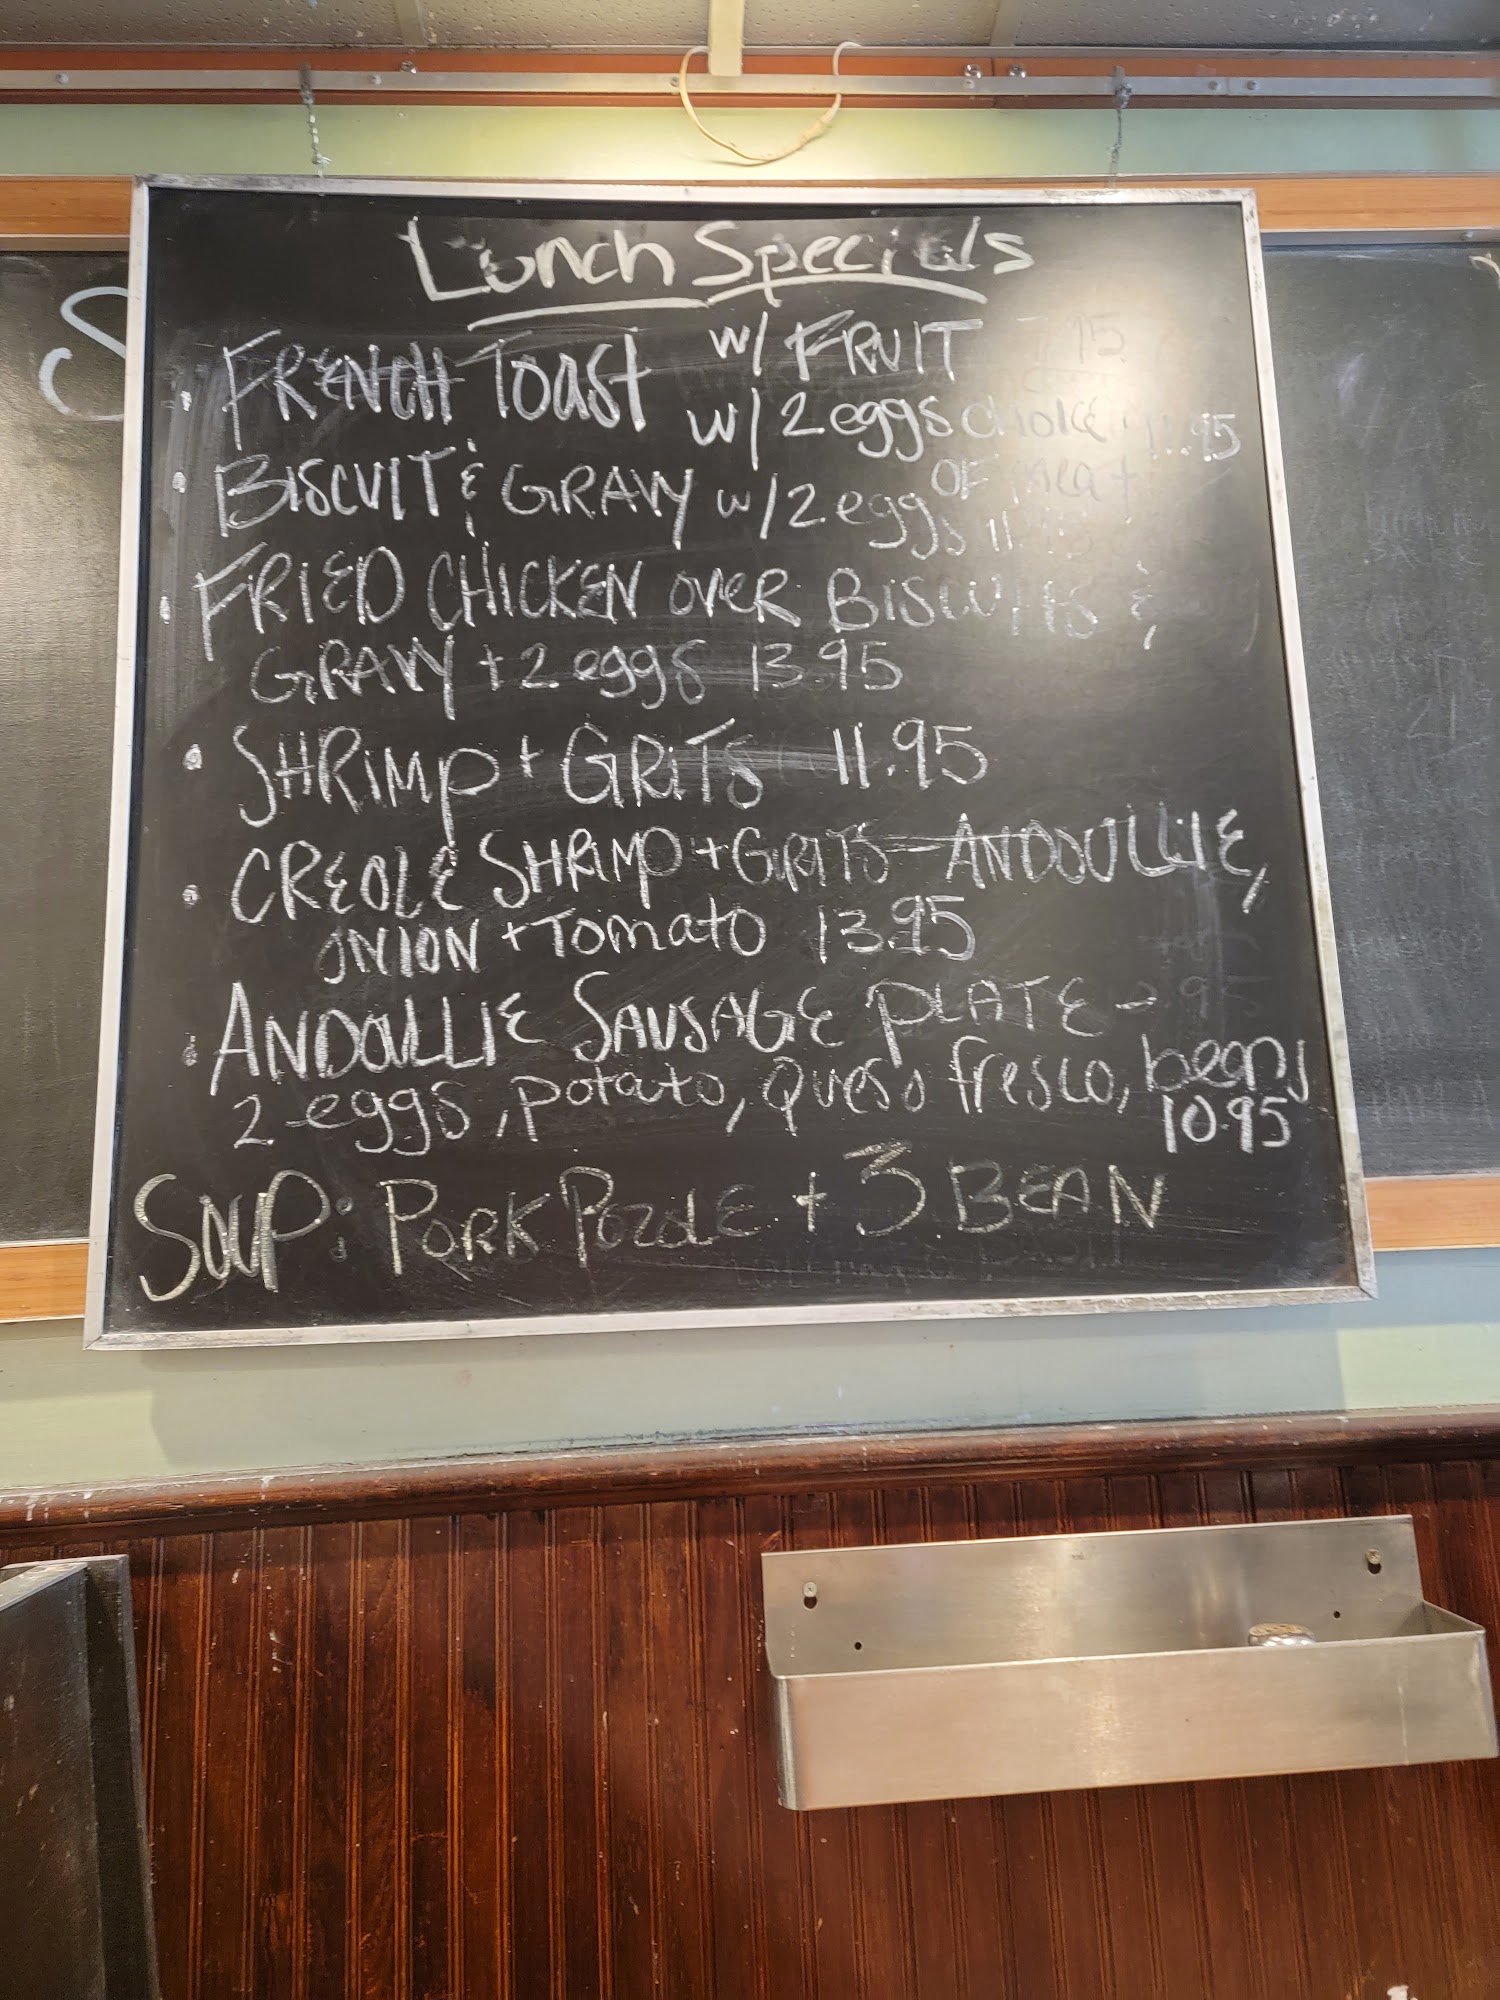 Lunch Specials
• FRENCH TOAST w/ FRUIT
w/ 2 eggs choice 11.95
OF meat
• BISCUIT & GRAVY w/ 2 eggs
• FRIED CHICKEN OVER BISCUITS &
GRAVY + 2 eggs 13.95
• SHRIMP + GRITS 11.95
• CREOLE SHRIMP + GRITS - ANDOULLIE,
ONION + TOMATO 13.95
• ANDOULLIE SAUSAGE PLATE -
2 eggs, potato, queso fresco, beans
10.95
SOUP: PORK POZOLE + 3 BEAN